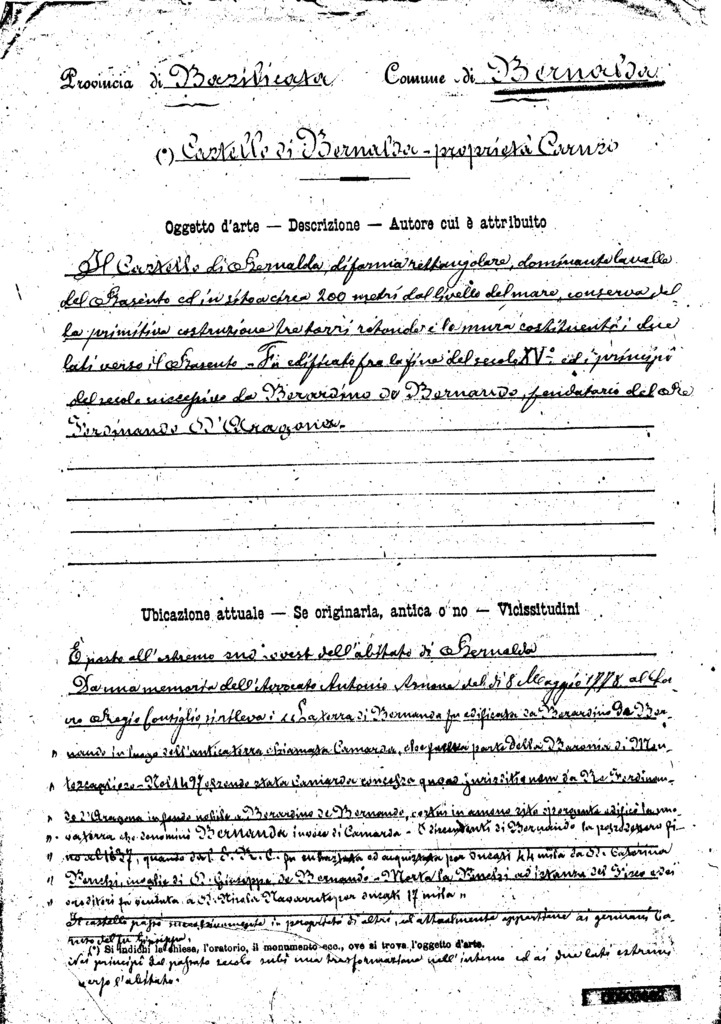 Provincia di Basilicata Comune di Bernalda
(*) Castello di Bernalda - proprietà Caruso
Oggetto d'arte — Descrizione — Autore cui è attribuito
Il Castello di Bernalda di forma rettangolare, dominante la valle
del Basento ed in sito a circa 200 metri dal livello del mare, conserva del
la primitiva costruzione tre torri rotonde e le mura costituenti i due
lati verso il Basento - Fu edificato fra la fine del secolo XV° ed i principi
del secolo successivo da Berardino de Bernaudo, feudatario del Re
Ferdinando D'Aragona -
Ubicazione attuale — Se originaria, antica o no — Vicissitudini
È posto all'estremo sud ovest dell'abitato di Bernalda
Da una memoria dell'Avvocato Antonio del dì 8 Maggio 1778 al Sa-
cro Regio Consiglio si rileva: « La terra di Bernauda fu edificata da Berardino de Ber-
" naudo in luogo dell'antica terra chiamata Camarda, che faceva parte della Baronia di Mon-
" tescaglioso - Nel 1497 essendo stata Camarda concessa quoad jurisditionem da Re Ferdinan-
" do d'Aragona in feudo nobile a Berardino de Bernaudo, costui in ameno sito sporgente edificò la nuo-
" va terra che denominò Bernauda invece di Camarda - I discendenti di Bernaudo la possedettero fi-
" no al 1627, quando dal S. R. C. fu ed acquistata per ducati 44 mila da D. Caterina
" moglie di D. Giuseppe de Bernaudo - Morta la ad istanza del Fisco e dei
" creditori fu venduta a D. Nicola Navarrete per ducati 17 mila "
Il castello passò successivamente in proprietà di altri, ed attualmente appartiene ai germani Ca-
ruso del fu Giuseppe.
(*) Si indichi la chiesa, l'oratorio, il monumento ecc., ove si trova l'oggetto d'arte.
Nei principi del passato secolo subì una trasformazione nell'interno ed ai due lati estremi
verso l'abitato.